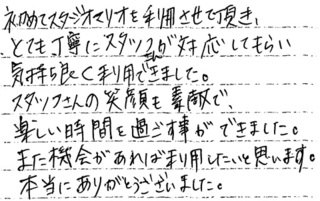 初めてスタジオマリオを利用させて頂き、
とても丁寧にスタッフさんが対応してもらい
気持ち良く利用できました。
スタッフさんの笑顔も素敵で、
楽しい時間を過ごす事ができました。
また機会があれば利用したいと思います。
本当にありがとうございました。